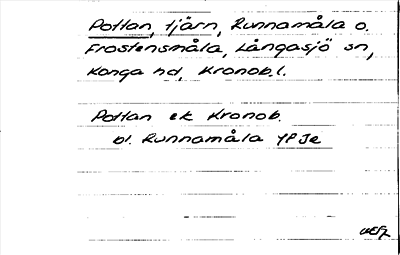 Pottan, tjärn, Runnamåla o.
Frostensmåla, Långasjö sn,
Konga hd, Kronob. l.
Pottan ek Kronob.
bl. Runnamåla